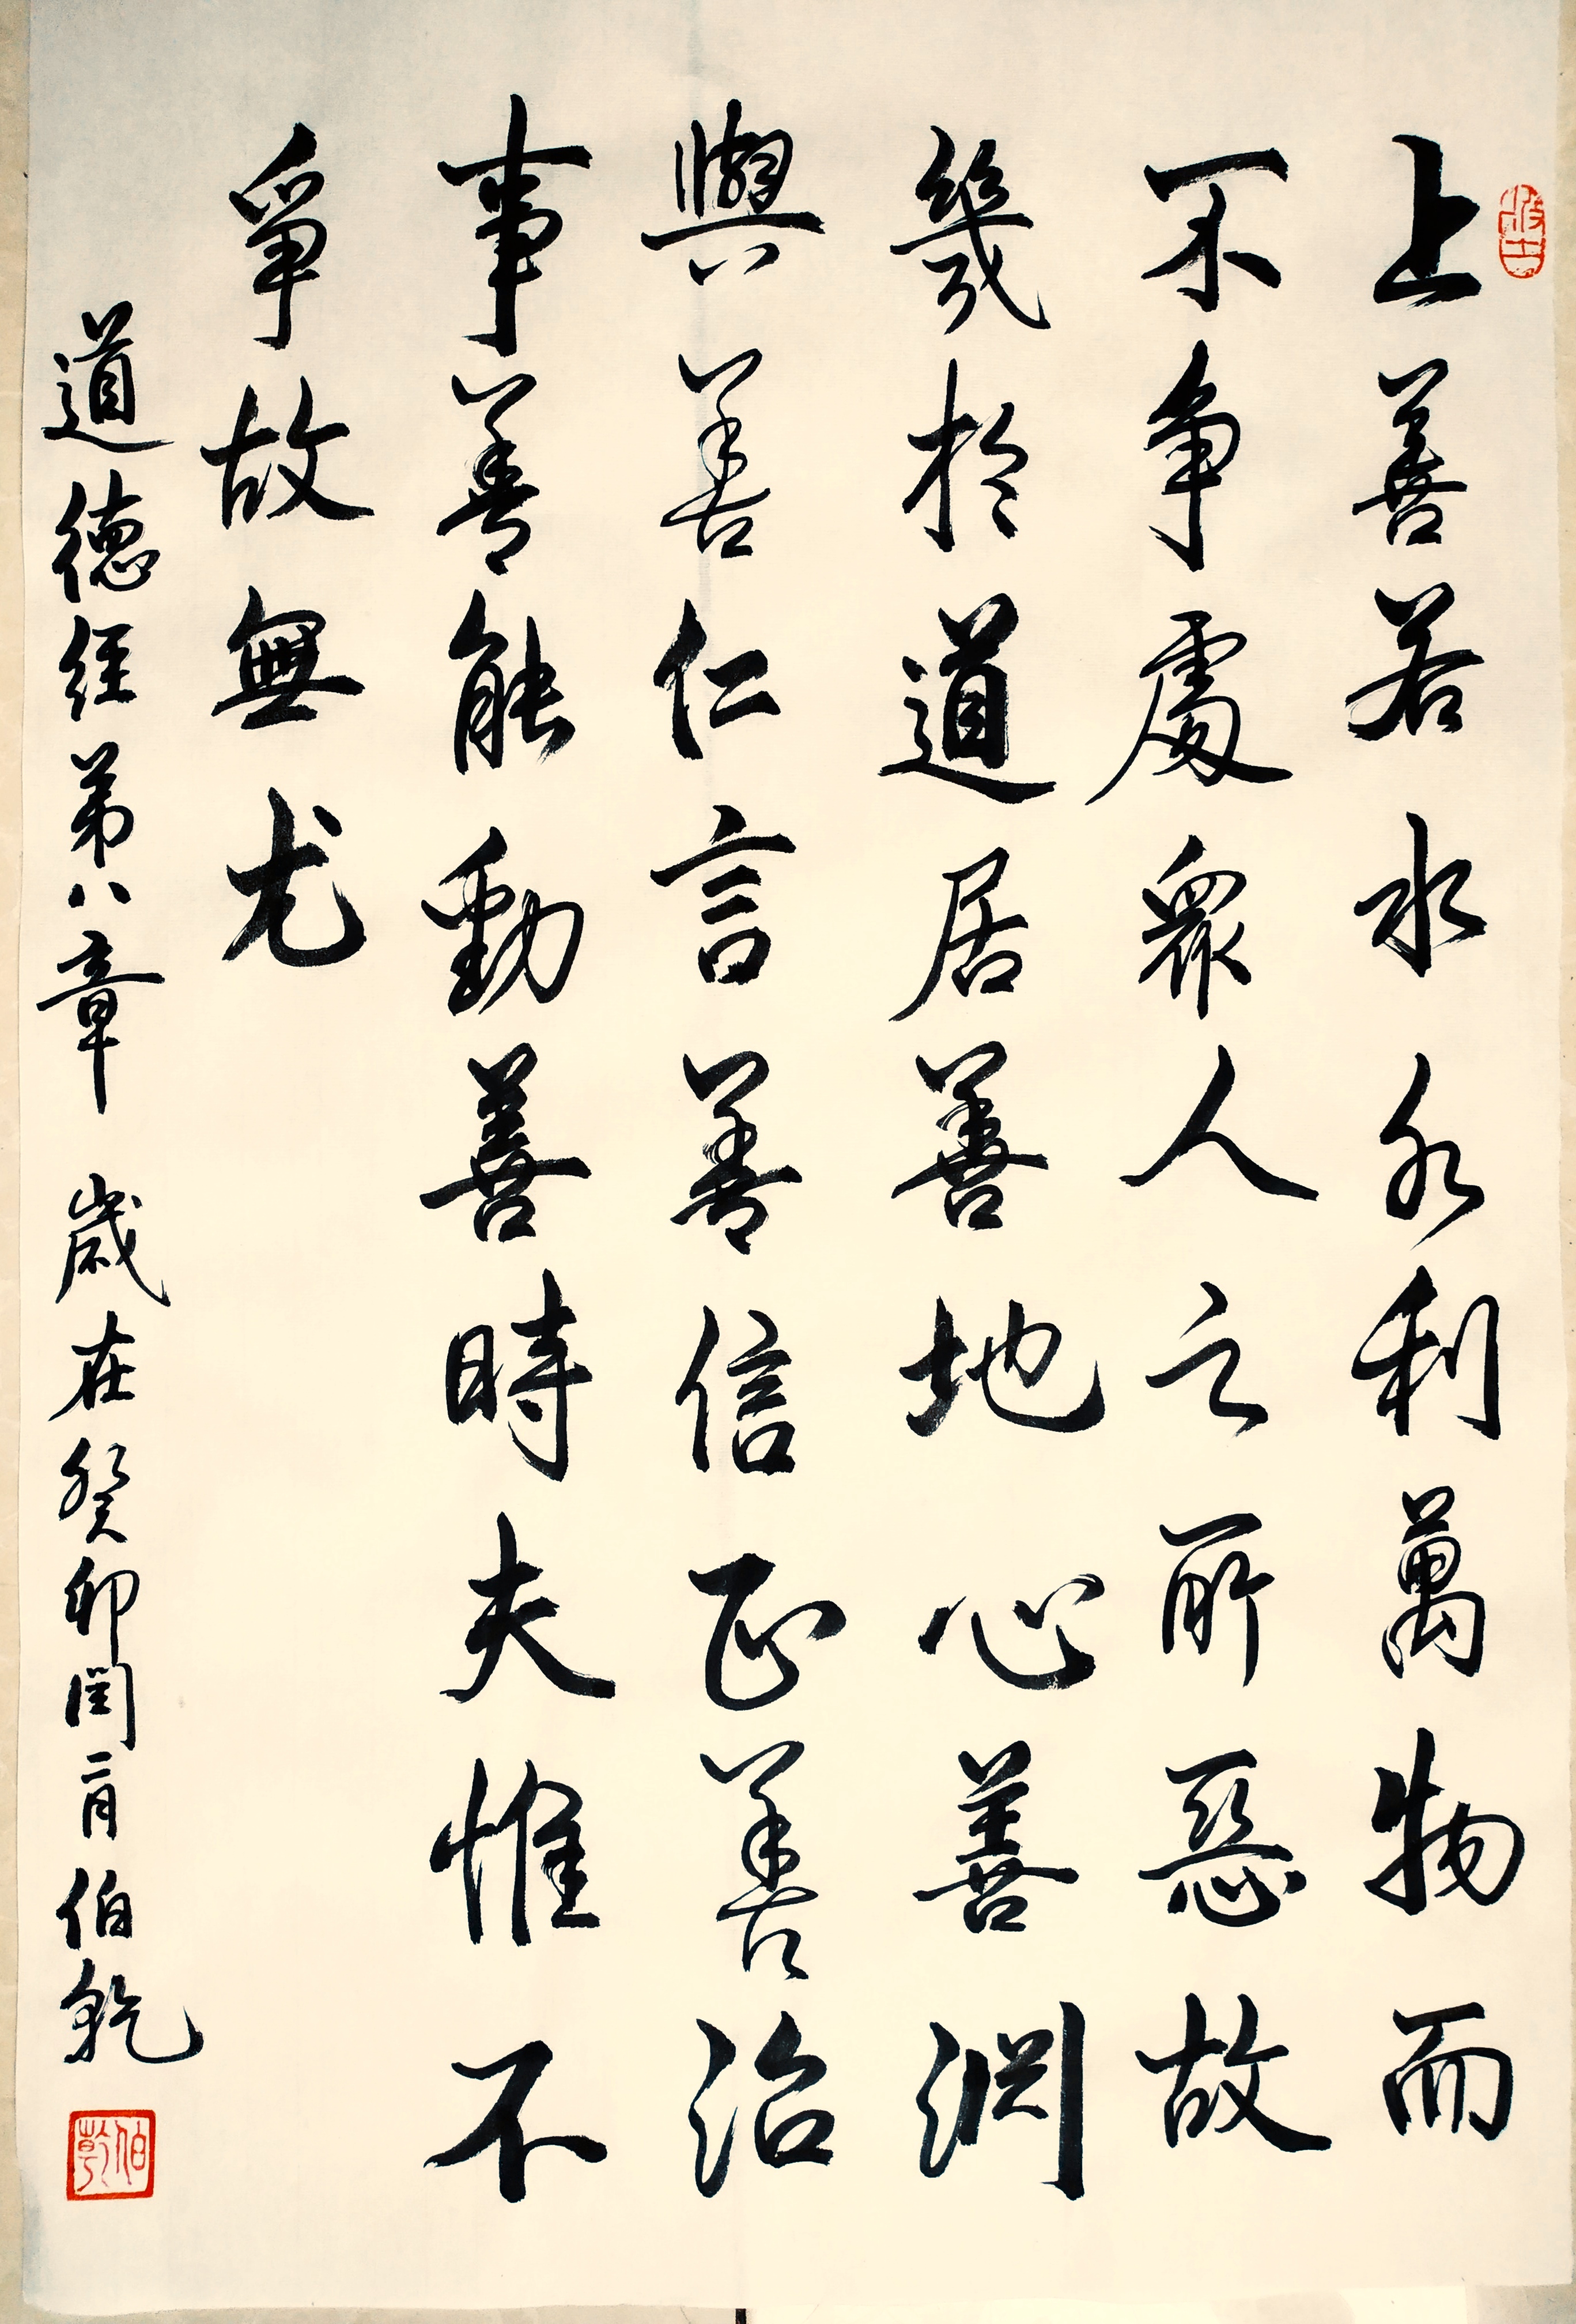 上善若水水利萬物而
不争處衆人之所惡故
幾於道居善地心善淵
與善仁言善信正善治
事善能動善時夫惟不
爭故無尤
道德经第八章 歲在癸卯閏二月伯乾
伯乾